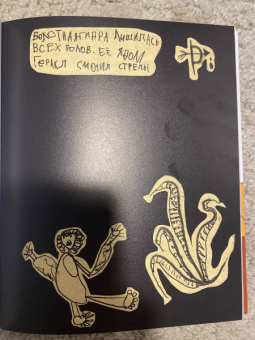 БОЛОТНАЯ ГИДРА ЛИШИЛАСЬ
ВСЕХ ГОЛОВ. ЕЁ ЯДОМ
ГЕРАКЛ СМОЧИЛ СТРЕЛЫ